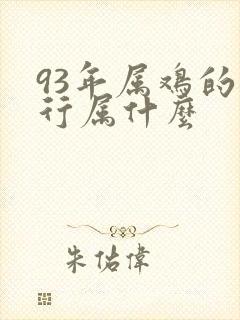 93年属鸡的
行属什麼
朱佑偉